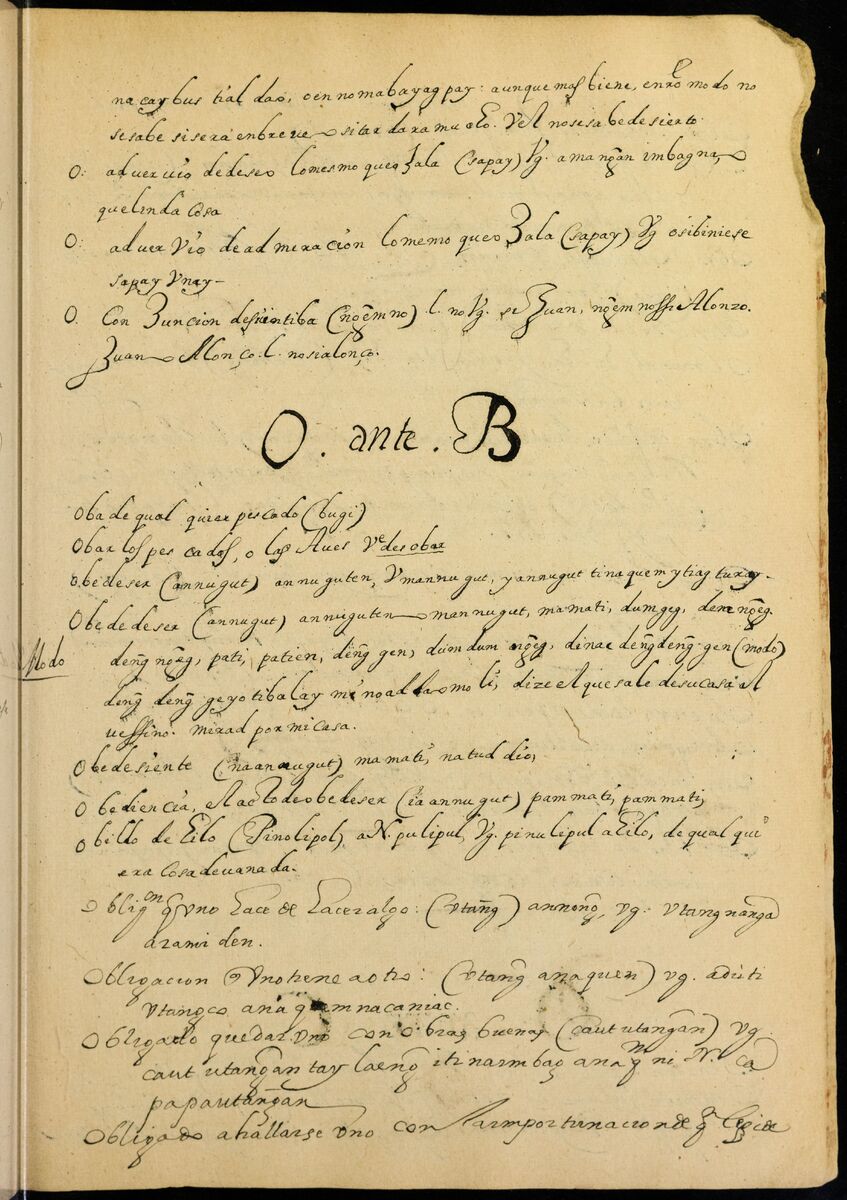 na cay bus tial dao, o en no mabayag pay: aunque mas biene, en rō modo no
sesabe si sera enbreve o si tardara mucho. Ve A no se sabe de sierto.
O: advervio de deseo lo mesmo queo zala (sapay) Vg. a mangan imbagna, o
que linda cosa
O: adver Vio de admiracion lo mermo queo Zala (sapay) Vg osibiniese
sapay Vnay-
O. Con Juncion desiuntiba (nog̃em no) l. no Vg. si Juan, nog̃em nossi Alonzo.
Juan o Alonço. l. nosialonço.
O. ante. B
Oba de qual quier pescado (bugi)
Obar los pes cados, o las Aves Ve desobar
Obedeser (annugut) annuguten, Vmannugut, y annugut tinaquem ytiag turay-
Obededeser (annugut) annuguten o mannugut, mamati, dumgeg,
deng̃ nog̃eg, pati, patien, deng̃ gen, dumdum nog̃eg, dinac deng̃deng̃ gen (modo)
Modo
deng̃ deng̃ geyo tibalay
vessino. mirad por mi casa.
Obedesiente (naannugut) mamati, natuddio,
Obediencia, el acto de obedeser (ia annugut) pammati, pammati,
Obillo de hilo (Pinolipol) a N. pulipul, Vg. pinulipul a hilo, de qual qui
era cosa devanada.
Oblign q̃ Vno hace de hacer algo: (vtang̃) annong̃, vg: vtang nanga
aramiden.
Obligacion q̃ Vno tiene a otro: (vtang̃ anaquen) vg. adu ti
vtang̃co ana q̃em nacaniac.
Obligado quedar vno con obras buenas (caut utang̃an) vg
caut utang̃an tay laeng̃ iti naimbag ana q̃m ni N. ca
papautang̃an
Obligado a hallarse vno con la importunacion de q̃